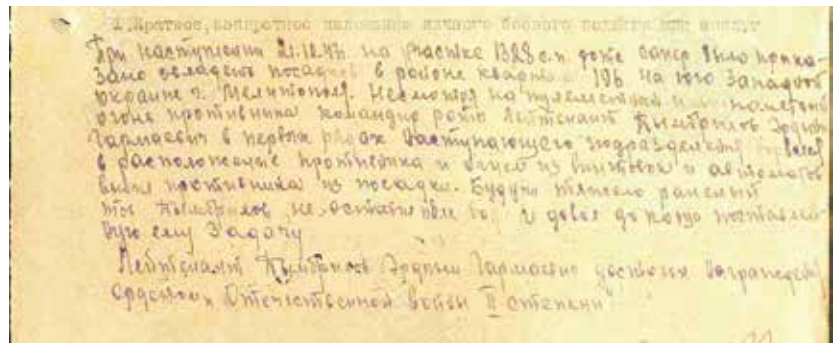 I. Краткое, конкретное изложение личного боевого подвига или заслуг
При наступлении 21.10.43 на участке 1328 с.п. роте было прика-
зано овладеть посадкой в районе квартала 196 на юго западной
окраине г. Мелитополя. Несмотря на пулеметный и минометный
огонь противника командир роты лейтенант Цымбрилов Эрдыни
Гармаевич в первых рядах наступающего подразделения ворвался
в расположение противника и огнем из винтовок и автоматов
выбил противника из посадки. Будучи тяжело раненый
Цымбрилов не оставил поле боя и довел до конца поставлен-
ную ему задачу
Лейтенант Цымбрилов Эрдыни Гармаевич достоин награждения
орденом Отечественной войны II степени